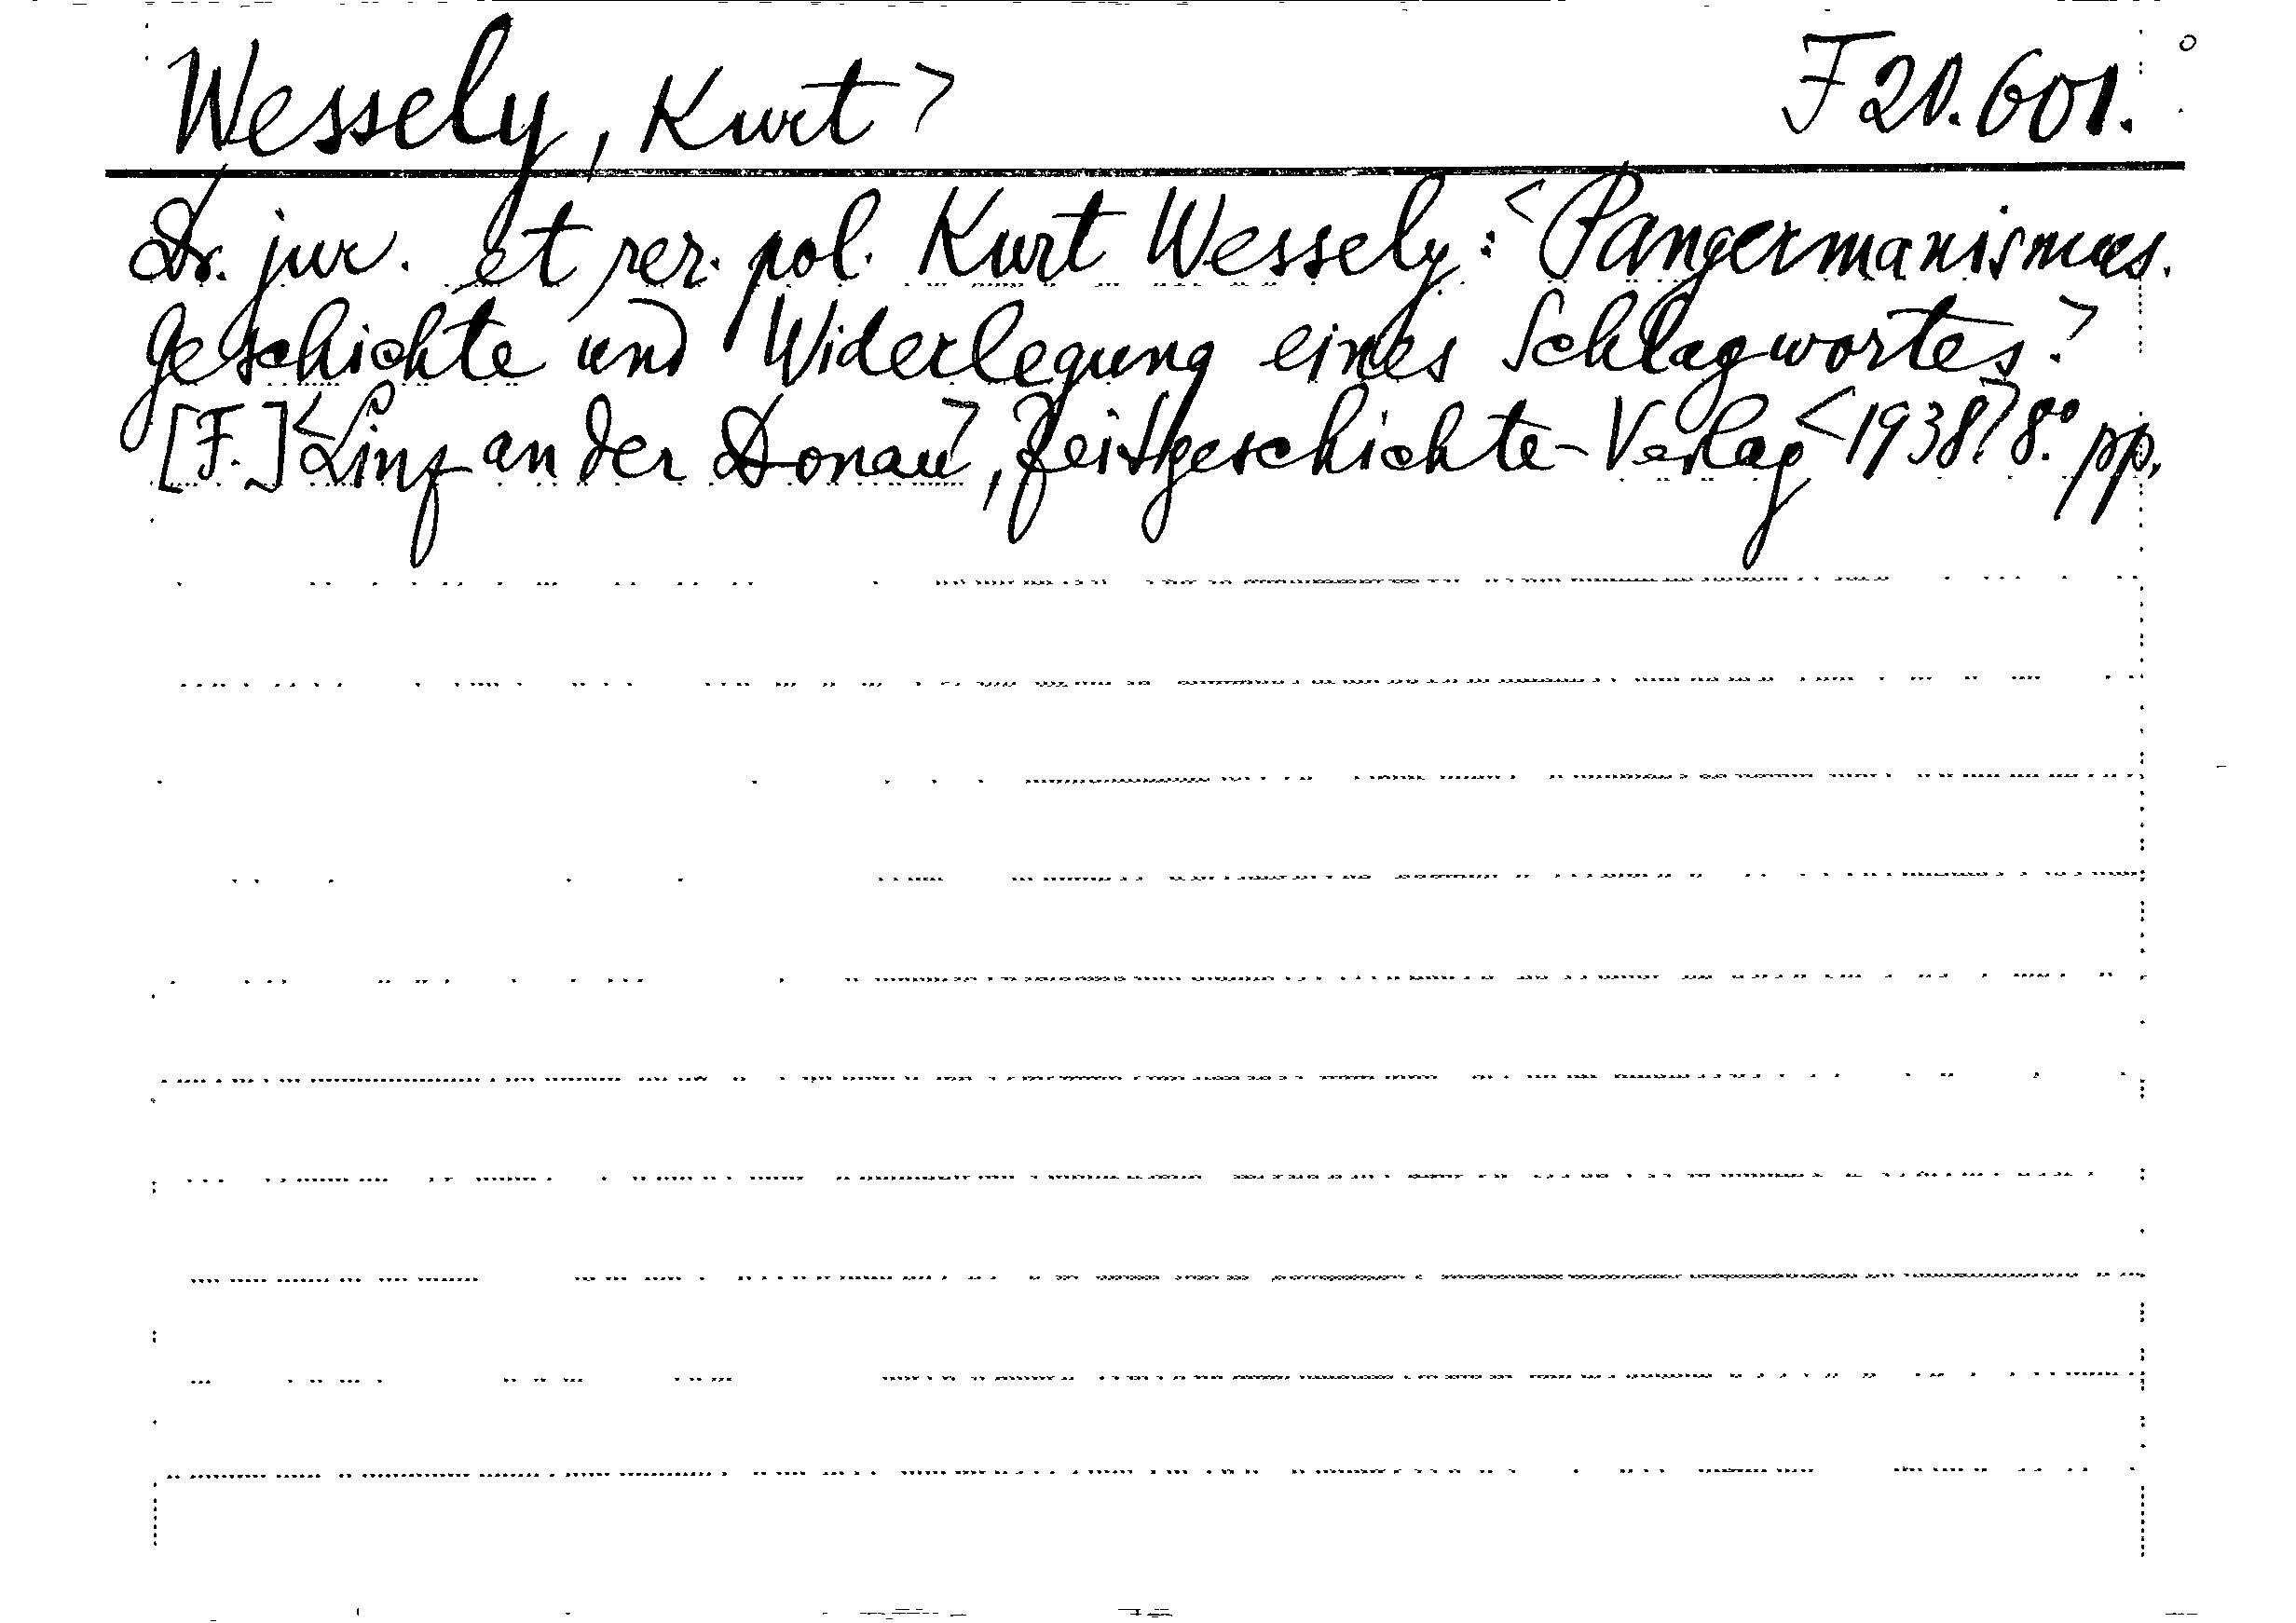 Wessely, Kurt> F 20.601.
Dr. jur. et rer. pol. Kurt Wessely: <Pangermanismus.
Geschichte und Widerlegung eines Schlagwortes.>
[F.] <Linz an der Donau>, Zeitgeschichte-Verlag <1938> 8.° pp.